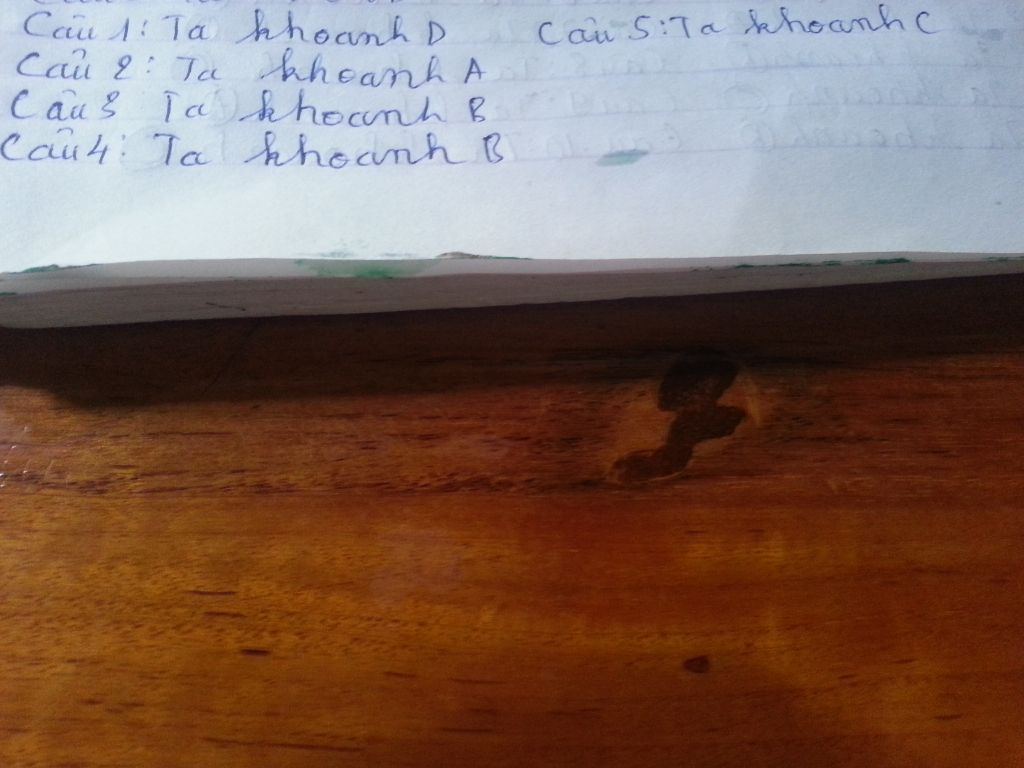 Câu 1: Ta khoanh D Câu 5: Ta khoanh C
Câu 2: Ta khoanh A
Câu 3 Ta khoanh B
Câu 4: Ta khoanh B